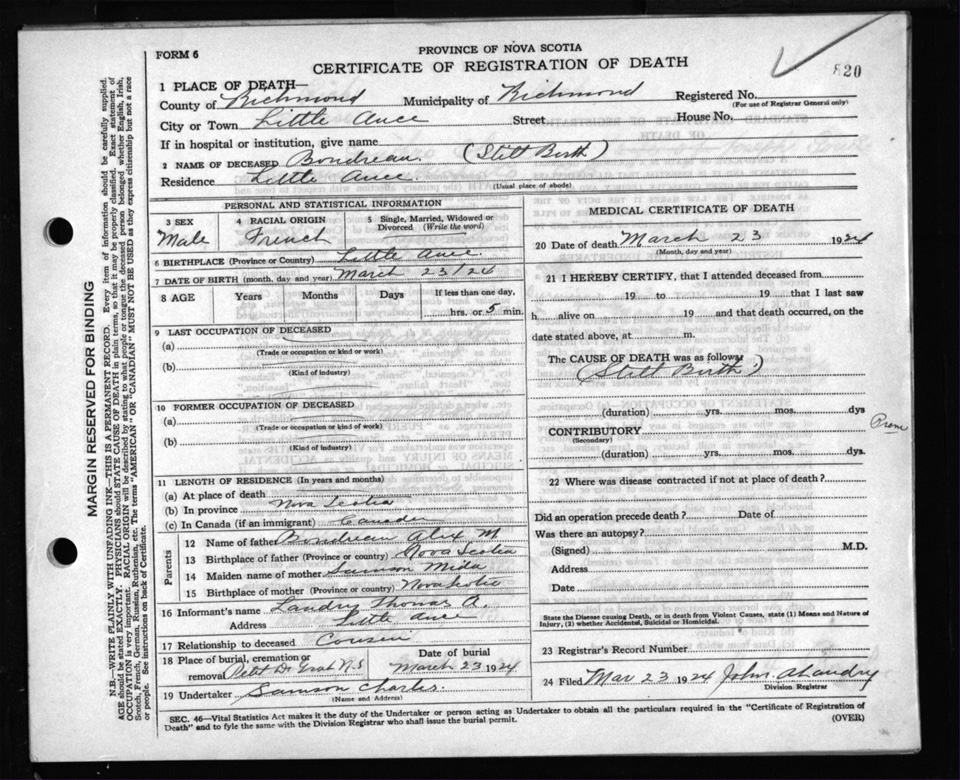 FORM 6
PROVINCE OF NOVA SCOTIA
CERTIFICATE OF REGISTRATION OF DEATH
820
1 PLACE OF DEATH—
County of Richmond Municipality of Richmond Registered No.
(For use of Registrar General only)
City or Town Little Ance Street House No.
If in hospital or institution, give name
2 NAME OF DECEASED Boudreau (Still Birth)
Residence Little Ance
(Usual place of abode)
PERSONAL AND STATISTICAL INFORMATION
3 SEX 4 RACIAL ORIGIN 5 Single, Married, Widowed or Divorced (Write the word)
Male French
6 BIRTHPLACE (Province or Country) Little Ance
7 DATE OF BIRTH (month, day and year) March 23/24
8 AGE Years Months Days If less than one day,
hrs. or 5 min.
9 LAST OCCUPATION OF DECEASED
(a)
(Trade or occupation or kind of work)
(b)
(Kind of industry)
10 FORMER OCCUPATION OF DECEASED
(a)
(Trade or occupation or kind of work)
(b)
(Kind of industry)
11 LENGTH OF RESIDENCE (In years and months)
(a) At place of death
(b) In province Nova Scotia
(c) In Canada (if an immigrant) Canada
Parents
12 Name of father Boudreau Alex M
13 Birthplace of father (Province or country) Nova Scotia
14 Maiden name of mother Samson Mida
15 Birthplace of mother (Province or country) Nova Scotia
16 Informant's name Landry Thomas A.
Address Little Ance
17 Relationship to deceased Cousin
18 Place of burial, cremation or removal Petit De Grat N.S Date of burial March 23 1924
19 Undertaker Samson Charles
(Name and Address)
MEDICAL CERTIFICATE OF DEATH
20 Date of death March 23 1924
(Month, day and year)
21 I HEREBY CERTIFY, that I attended deceased from
19 to 19 that I last saw
h alive on 19 and that death occurred, on
date stated above, at m.
The CAUSE OF DEATH was as follows
(Still Birth)
(duration) yrs. mos. dys
CONTRIBUTORY
(Secondary)
(duration) yrs. mos. dys.
22 Where was disease contracted if not at place of death?
Did an operation precede death? Date of
Was there an autopsy?
(Signed) M.D.
Address
Date
State the Disease causing Death, or in death from Violent Causes, state (1) Means and Nature of
Injury, (2) whether Accidental, Suicidal or Homicidal.
23 Registrar's Record Number
24 Filed Mar 23 1924 John A Landry
Division Registrar
SEC. 46—Vital Statistics Act makes it the duty of the Undertaker or person acting as Undertaker to obtain all the particulars required in the "Certificate of Registration of
Death" and to fyle the same with the Division Registrar who shall issue the burial permit.
(OVER)
MARGIN RESERVED FOR BINDING
N.B.—WRITE PLAINLY WITH UNFADING INK—THIS IS A PERMANENT RECORD. Every item of information should be carefully supplied.
AGE should be stated EXACTLY. PHYSICIANS should STATE CAUSE OF DEATH in plain terms, so that it may be properly classified. Exact statement of
OCCUPATION is very important. RACIAL ORIGIN will be described by stating to what people or tongue the deceased person belonged whether English, Irish,
Scotch, French, German, Russian, Ruthenian, etc. The terms "AMERICAN" OR "CANADIAN" MUST NOT BE USED as they express citizenship but not a race
or people. See instructions on back of Certificate.